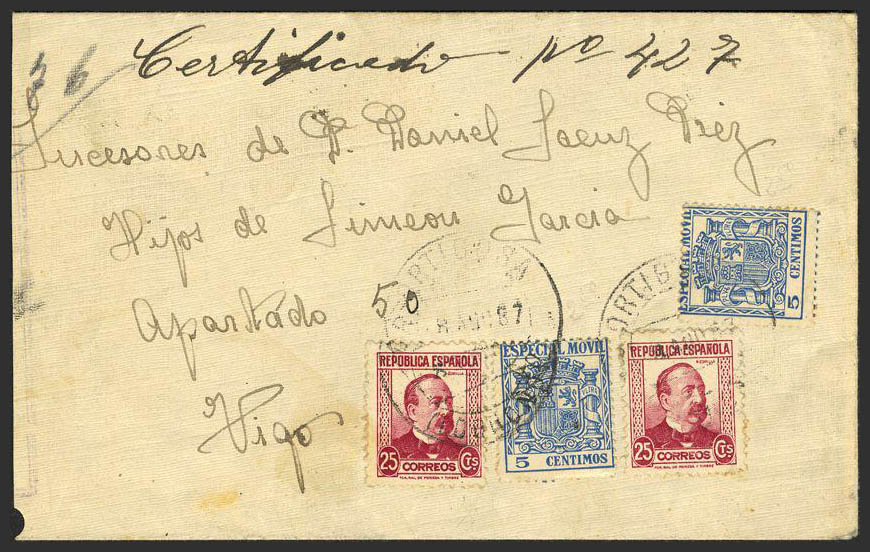 Certificado nº 427
Sucesores de D. Daniel Saenz Diez
Hijos de Simeon Garcia
Apartado 50
Vigo
ESPECIAL MOVIL
5 CENTIMOS
ORTIGUEIRA
REPUBLICA ESPAÑOLA
25 CORREOS Cts
ESPECIAL MOVIL
5 CENTIMOS
REPUBLICA ESPAÑOLA
25 CORREOS Cts